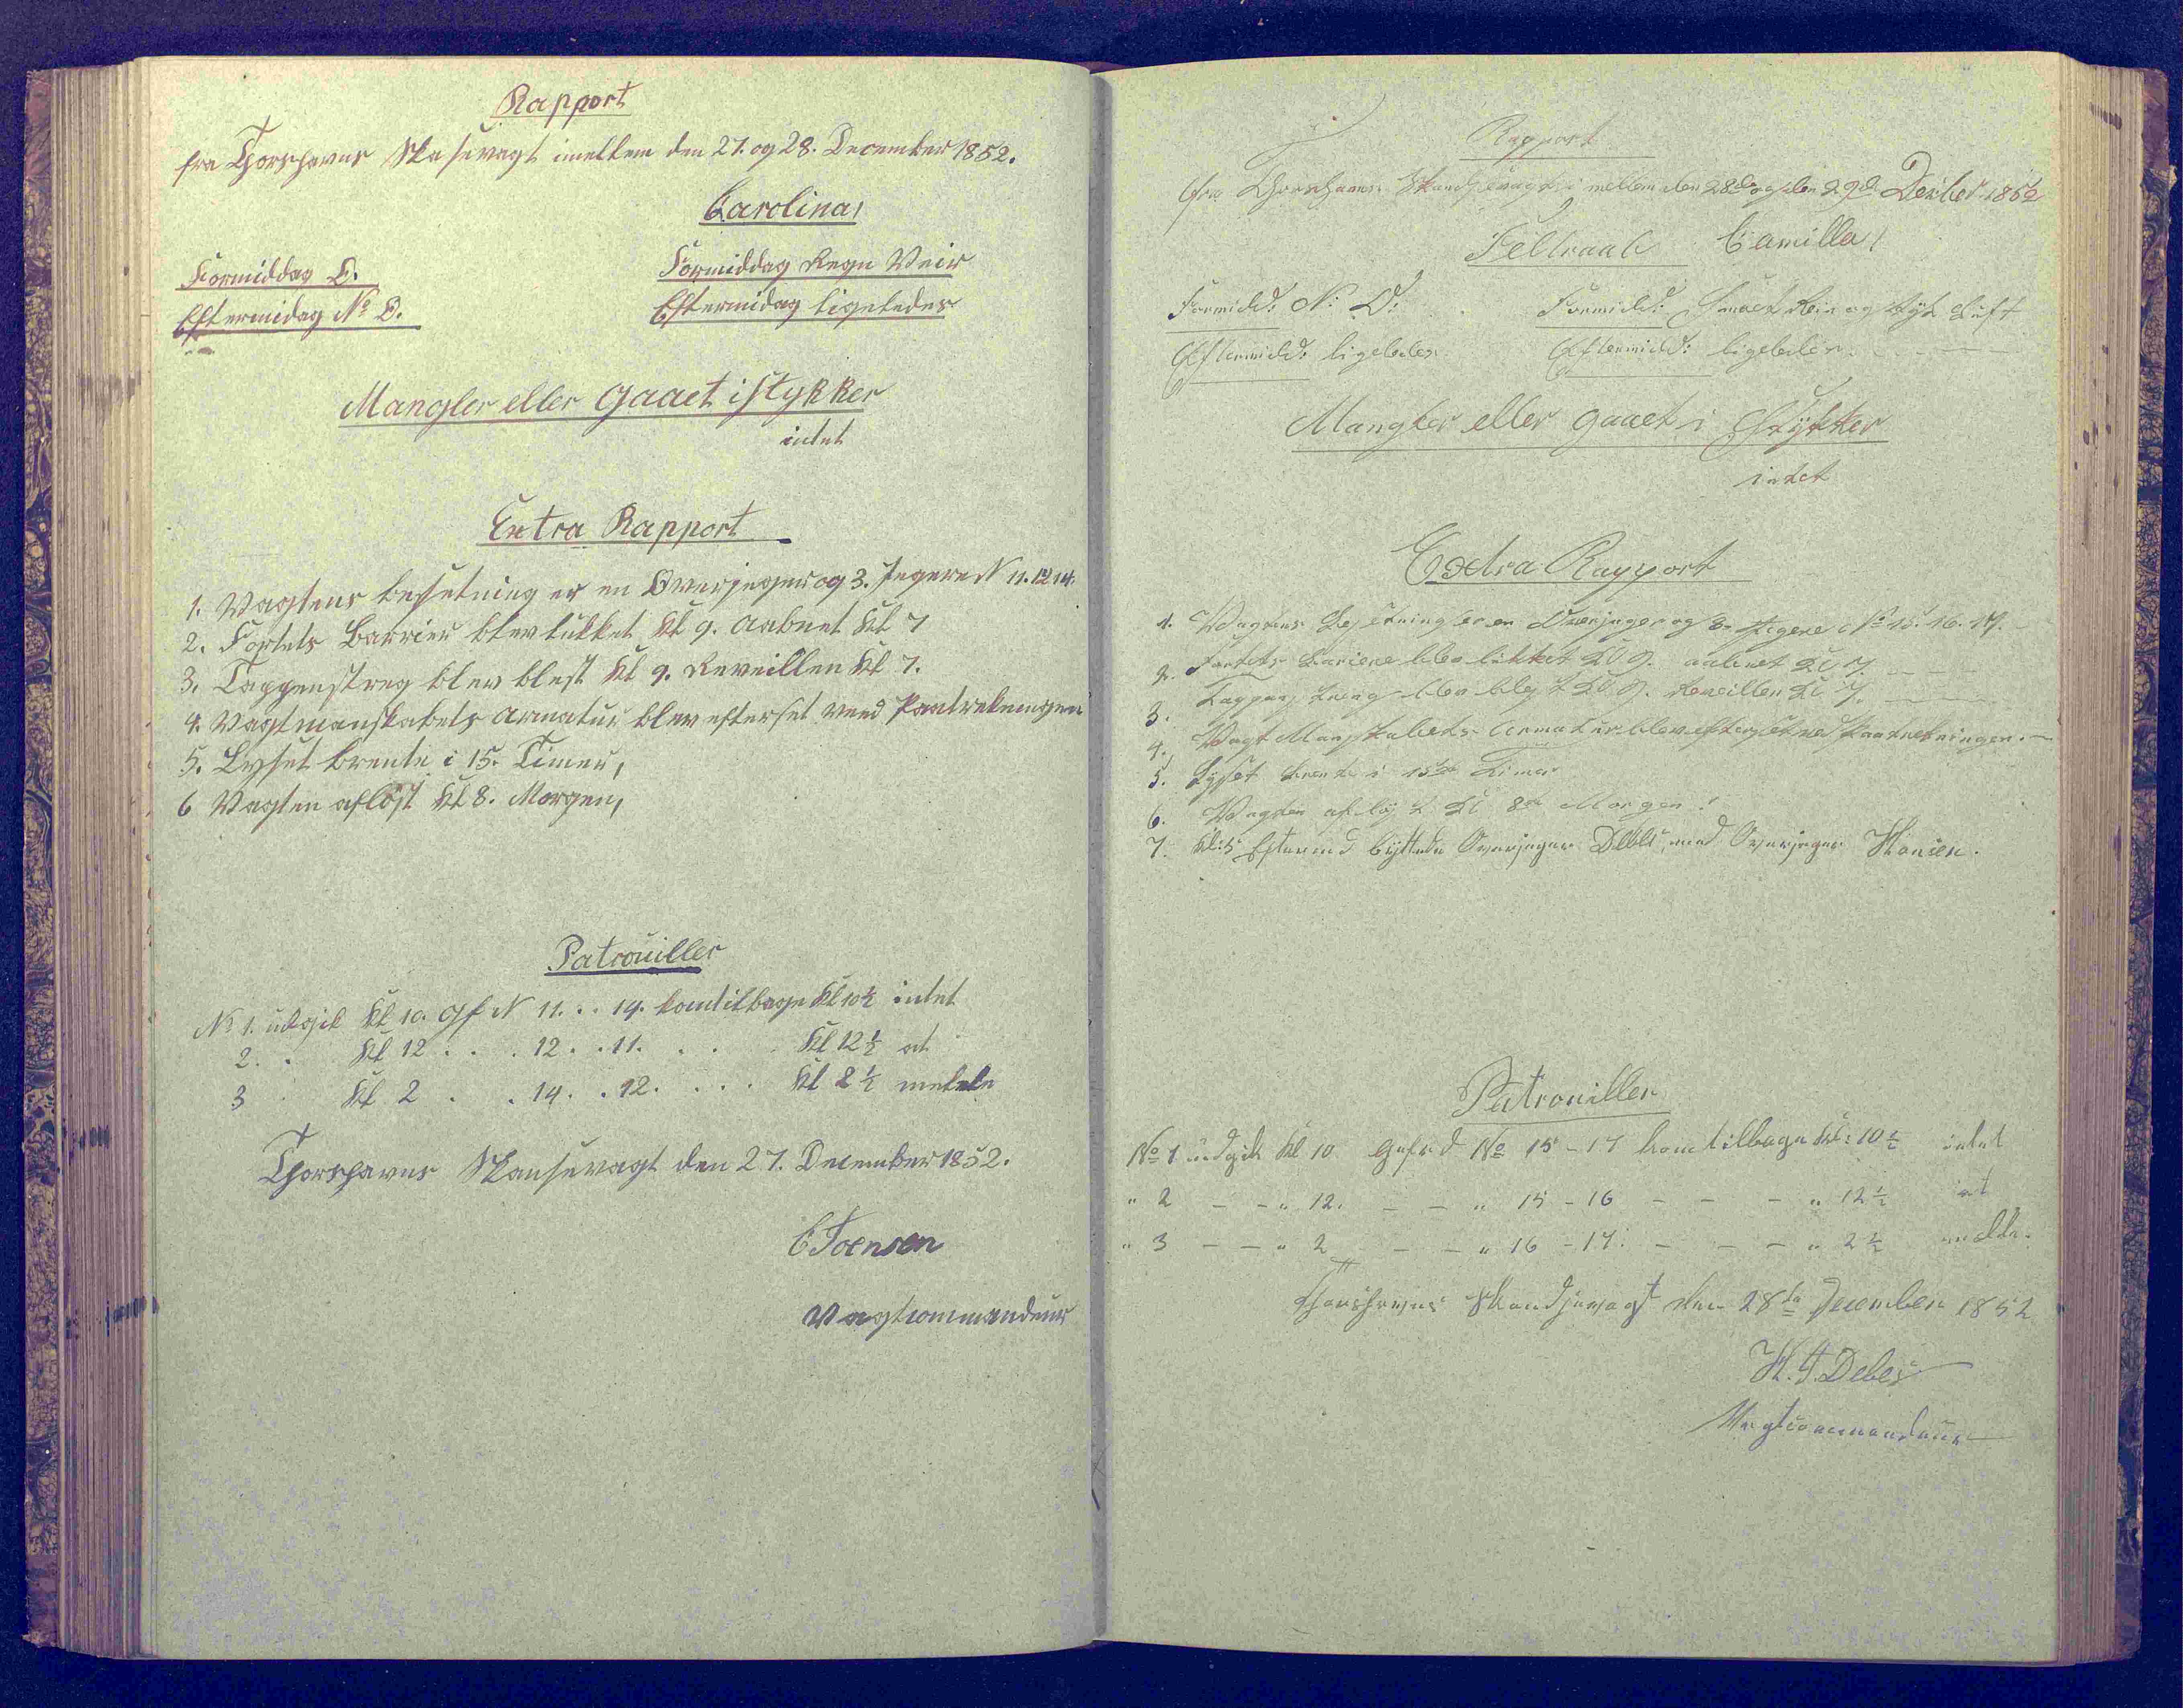 Rapport
fra Thorshavns Skasevagt imellem den 27. og 28. December 1852.
Carolina,
Formiddag O.
Formiddag Regn Veir
Eftermidag No O.
Eftermidag ligeledes
Mangler eller gaaet i stykker
intet
Extra Rapport
1. Vagtens besetning er en Overjeger og 3. Jegere N 11. 12 14.
2. Fortets Barrier blev lukket Kl 9. aabnet Kl 7
3. Tappenstreg blev blest Kl 9. Reveillen Kl 7.
4. Vagtmanskabets armatur blev efterset veed Paatredningen
5. Lyset brente i 15. Timer,
6 Vagten aflöst Kl 8. Morgen,
Patrouiller
No 1. udgik Kl 10. Gf N 11. . . 14. kom tilbage Kl 10½ intet
2. . Kl 12 . . . 12. . 11. . . . Kl 12½ at
3 . Kl 2 . . 14. . 12. . . . Kl 2½ melde
Thorshavns Skansevagt den 27. December 1852.
C Joensen
Vagtcommandeur
Rapport
fra Thorshavns Skandsevagt i mellem den 28de og den 29de Decbr 1852
Feltraab Camilla!
Formidd: N: O:
Formidd: Smaet Rein og tyk Luft
Eftermidd: ligeledes
Eftermidd: ligeledes
Mangler eller gaaet i Stykker
intet
Extra Rapport
1. Vagtens Besetning er en Overjeger og 3 Jegere No 15. 16. 17.
2. Fortets Bariere blev lukket Kl 9. aabnet Kl 7.
3. Tappenstreeg blev blest Kl 9. Reveillen Kl 7.
4. Vagt Manskabets Armatur blev efterset ved Paatredningen.
5. Lyset brente i 15 Timer
6. Vagten aflöst Kl 8 Morgen!
7. Kl: 5 Eftermd byttede Overjeger Debes med Overjeger Hansen.
Patrouiller
No 1 udgik Kl 10 Gefrd No 15 - 17 kom tilbage Kl: 10½ intet
" 2 - - " 12. - - " 15 - 16 - - - " 12½ at
" 3 - - " 2 - - " 16 - 17. - - - " 2½ melde.
Thorshavns Skandsevagt den 28de December 1852
H. J. Debes
Vagtcommandeur